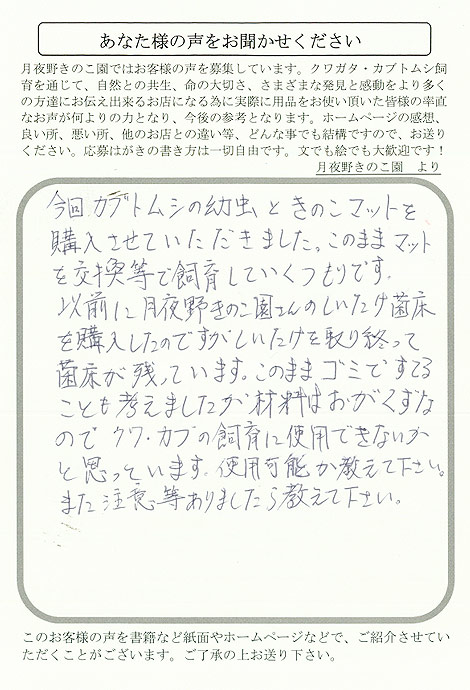 あなた様の声をお聞かせください
月夜野きのこ園ではお客様の声を募集しています。クワガタ・カブトムシ飼
育を通じて、自然との共生、命の大切さ、さまざまな発見と感動をより多く
の方達にお伝え出来るお店になる為に実際に用品をお使い頂いた皆様の率直
なお声が何よりの力となり、今後の参考となります。ホームページの感想、
良い所、悪い所、他のお店との違い等、どんな事でも結構ですので、お送り
ください。応募はがきの書き方は一切自由です。文でも絵でも大歓迎です!
月夜野きのこ園 より
今回カブトムシの幼虫ときのこマットを
購入させていただきました。このままマット
を交換等で飼育していくつもりです。
以前に月夜野きのこ園さんのしいたけ菌床
を購入したのですがしいたけを取り終って
菌床が残っています。このままゴミですてる
ことも考えましたが材料はおがくずな
のでクワ・カブの飼育に使用できないか
と思っています。使用可能か教えて下さい。
また注意等ありましたら教えて下さい。
このお客様の声を書籍など紙面やホームページなどで、ご紹介させてい
ただくことがございます。ご了承の上お送り下さい。